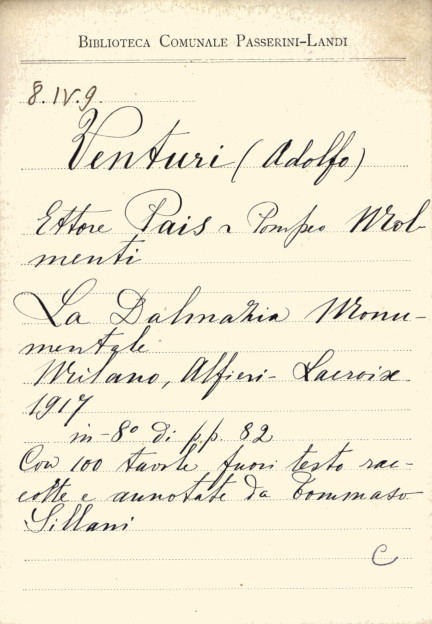 BIBLIOTECA COMUNALE PASSERINI-LANDI
8.IV.9.
Venturi (Adolfo)
Ettore Pais e Pompeo Mol-
menti
La Dalmazia Monu-
mentale
Milano, Alfieri-Lacroix
1917
in-8° di pp. 82
Con 100 tavole fuori testo rac-
colte e annotate da Tommaso
Sillani
C